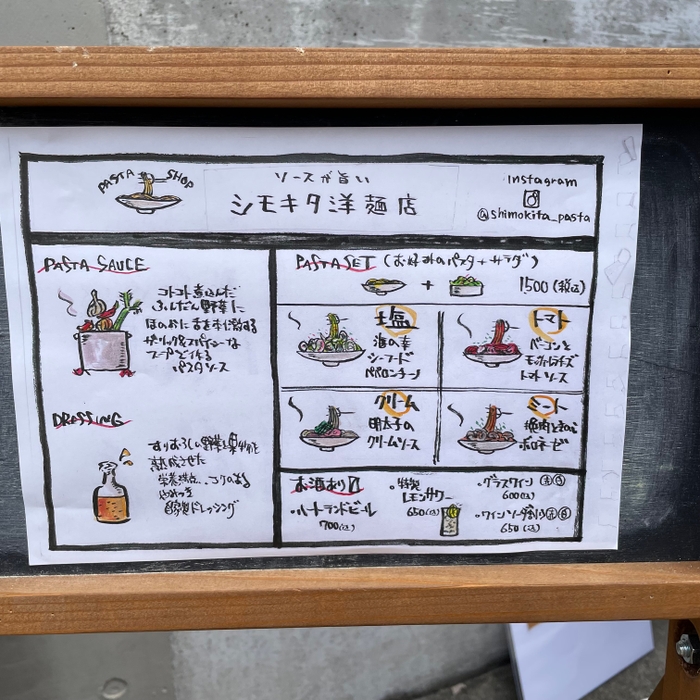 PASTA SHOP
ソースが旨い
シモキタ洋麺店
Instagram
@shimokita_pasta
PASTA SAUCE
コトコト煮込んだ
ふんだん野菜に
スープで作る
パスタソース
DRESSING
すりおろし野菜と果物を
熟成させた
自家製ドレッシング
PASTA SET (お好みのパスタ+サラダ)
+
1,500 (税込)
塩
海の幸
シーフード
ペペロンチーノ
トマト
ベーコンと
モッツァレラチーズ
トマトソース
クリーム
明太子の
クリームソース
ミート
挽肉ときのこ
ボロネーゼ
お酒あり〼
・ハートランドビール
700(込)
・特製
レモンサワー
650(込)
・グラスワイン 赤 白
600(込)
・ワインソーダ割り 赤 白
650(込)